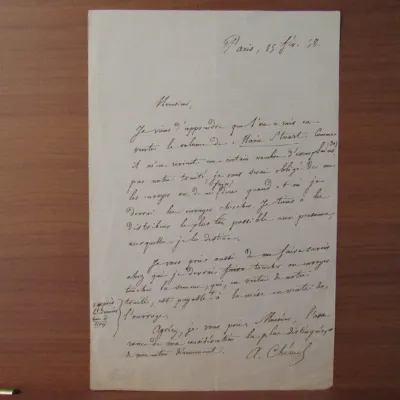 Paris, 25 fév. 58.
Monsieur,
Je viens d'apprendre que l'on a mis en
vente le volume de « Marie Stuart. Comme
il me revient un certain nombre d'exemplaires
par notre traité, je vous serai obligé de me
les envoyer ou de me dire quand et où je
devrai les envoyer chercher. Je tiens à les
distribuer le plus tôt possible aux personnes
auxquelles je les destine.
Je vous prie aussi de me faire savoir
chez qui je devrai faire toucher ou envoyer
toucher la somme, qui, en vertu de notre
traité, est payable à la mise en vente de
l'ouvrage.
Agréez, je vous prie, Monsieur, l'assu
rance de ma considération la plus distinguée
et de mon dévouement.
A. Chéruel